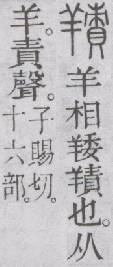 羵 羊相羵䍴也。从
羊。責聲。子賜切。
十六部。